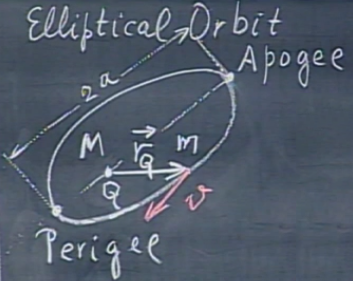 Elliptical Orbit
Apogee
2a
M
r⃗Q
m
Q
v
Perigee